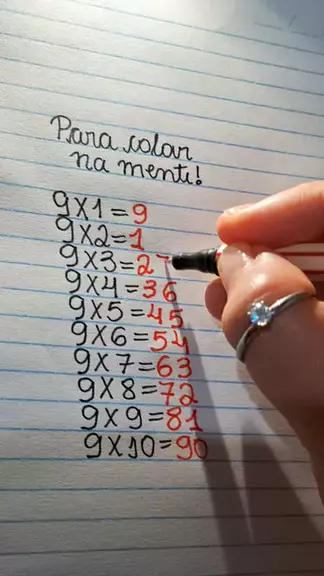 Para colar
na mente!
9X1=9
9X2=1
9X3=2
9X4=36
9X5=45
9X6=54
9X7=63
9X8=72
9X9=81
9X10=90